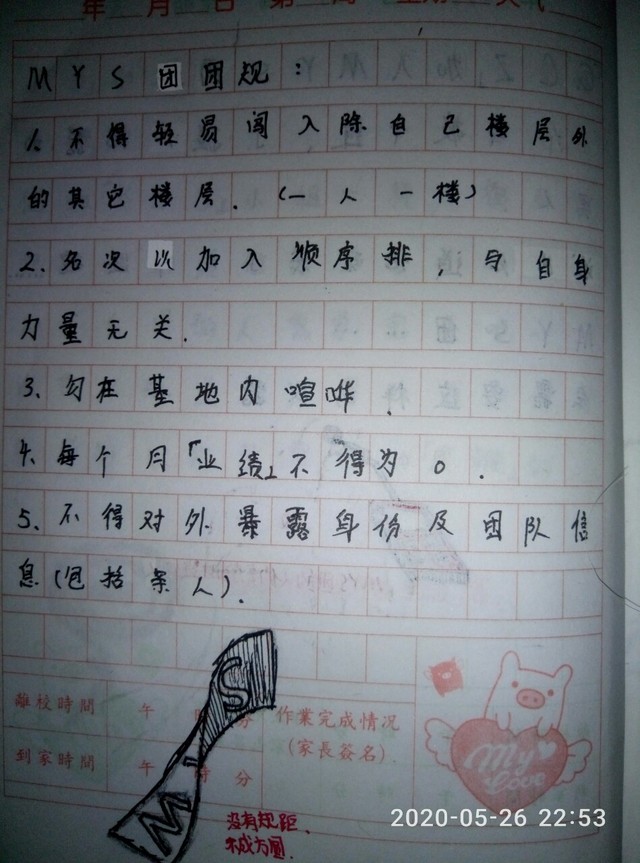 年 月 日 第 周 星期 天气
MYS团团规：
1.不得轻易闯入除自己楼层外
的其它楼层.(一人一楼)
2.名次以加入顺序排,与自身
力量无关.
3.勿在基地内喧哗.
4.每个月「业绩」不得为0.
5.不得对外暴露身份及团队信
息(包括亲人).
離校時間 午 時 分
作業完成情况
到家時間 午 時 分
(家長簽名)
My Love
M.S
没有规距,
不成方圆.
2020-05-26 22:53